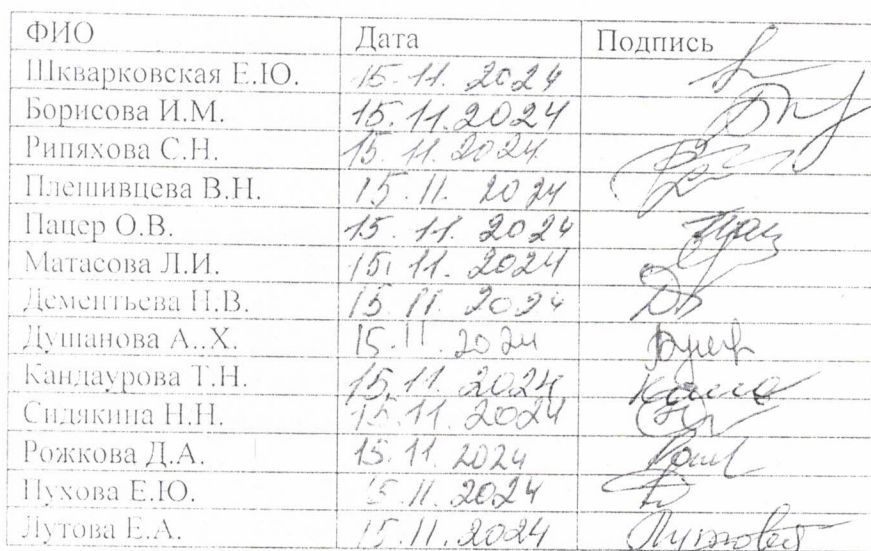 ФИО Дата Подпись
Шкварковская Е.Ю. 15.11.2024
Борисова И.М. 15.11.2024
Рипяхова С.Н. 15.11.2024
Плешивцева В.Н. 15.11.2024
Пацер О.В. 15.11.2024
Матасова Л.И. 15.11.2024
Дементьева Н.В. 15.11.2024
Душанова А..Х. 15.11.2024
Кандаурова Т.Н. 15.11.2024
Сидякина Н.Н. 15.11.2024
Рожкова Д.А. 15.11.2024
Пухова Е.Ю. 15.11.2024
Лутова Е.А. 15.11.2024